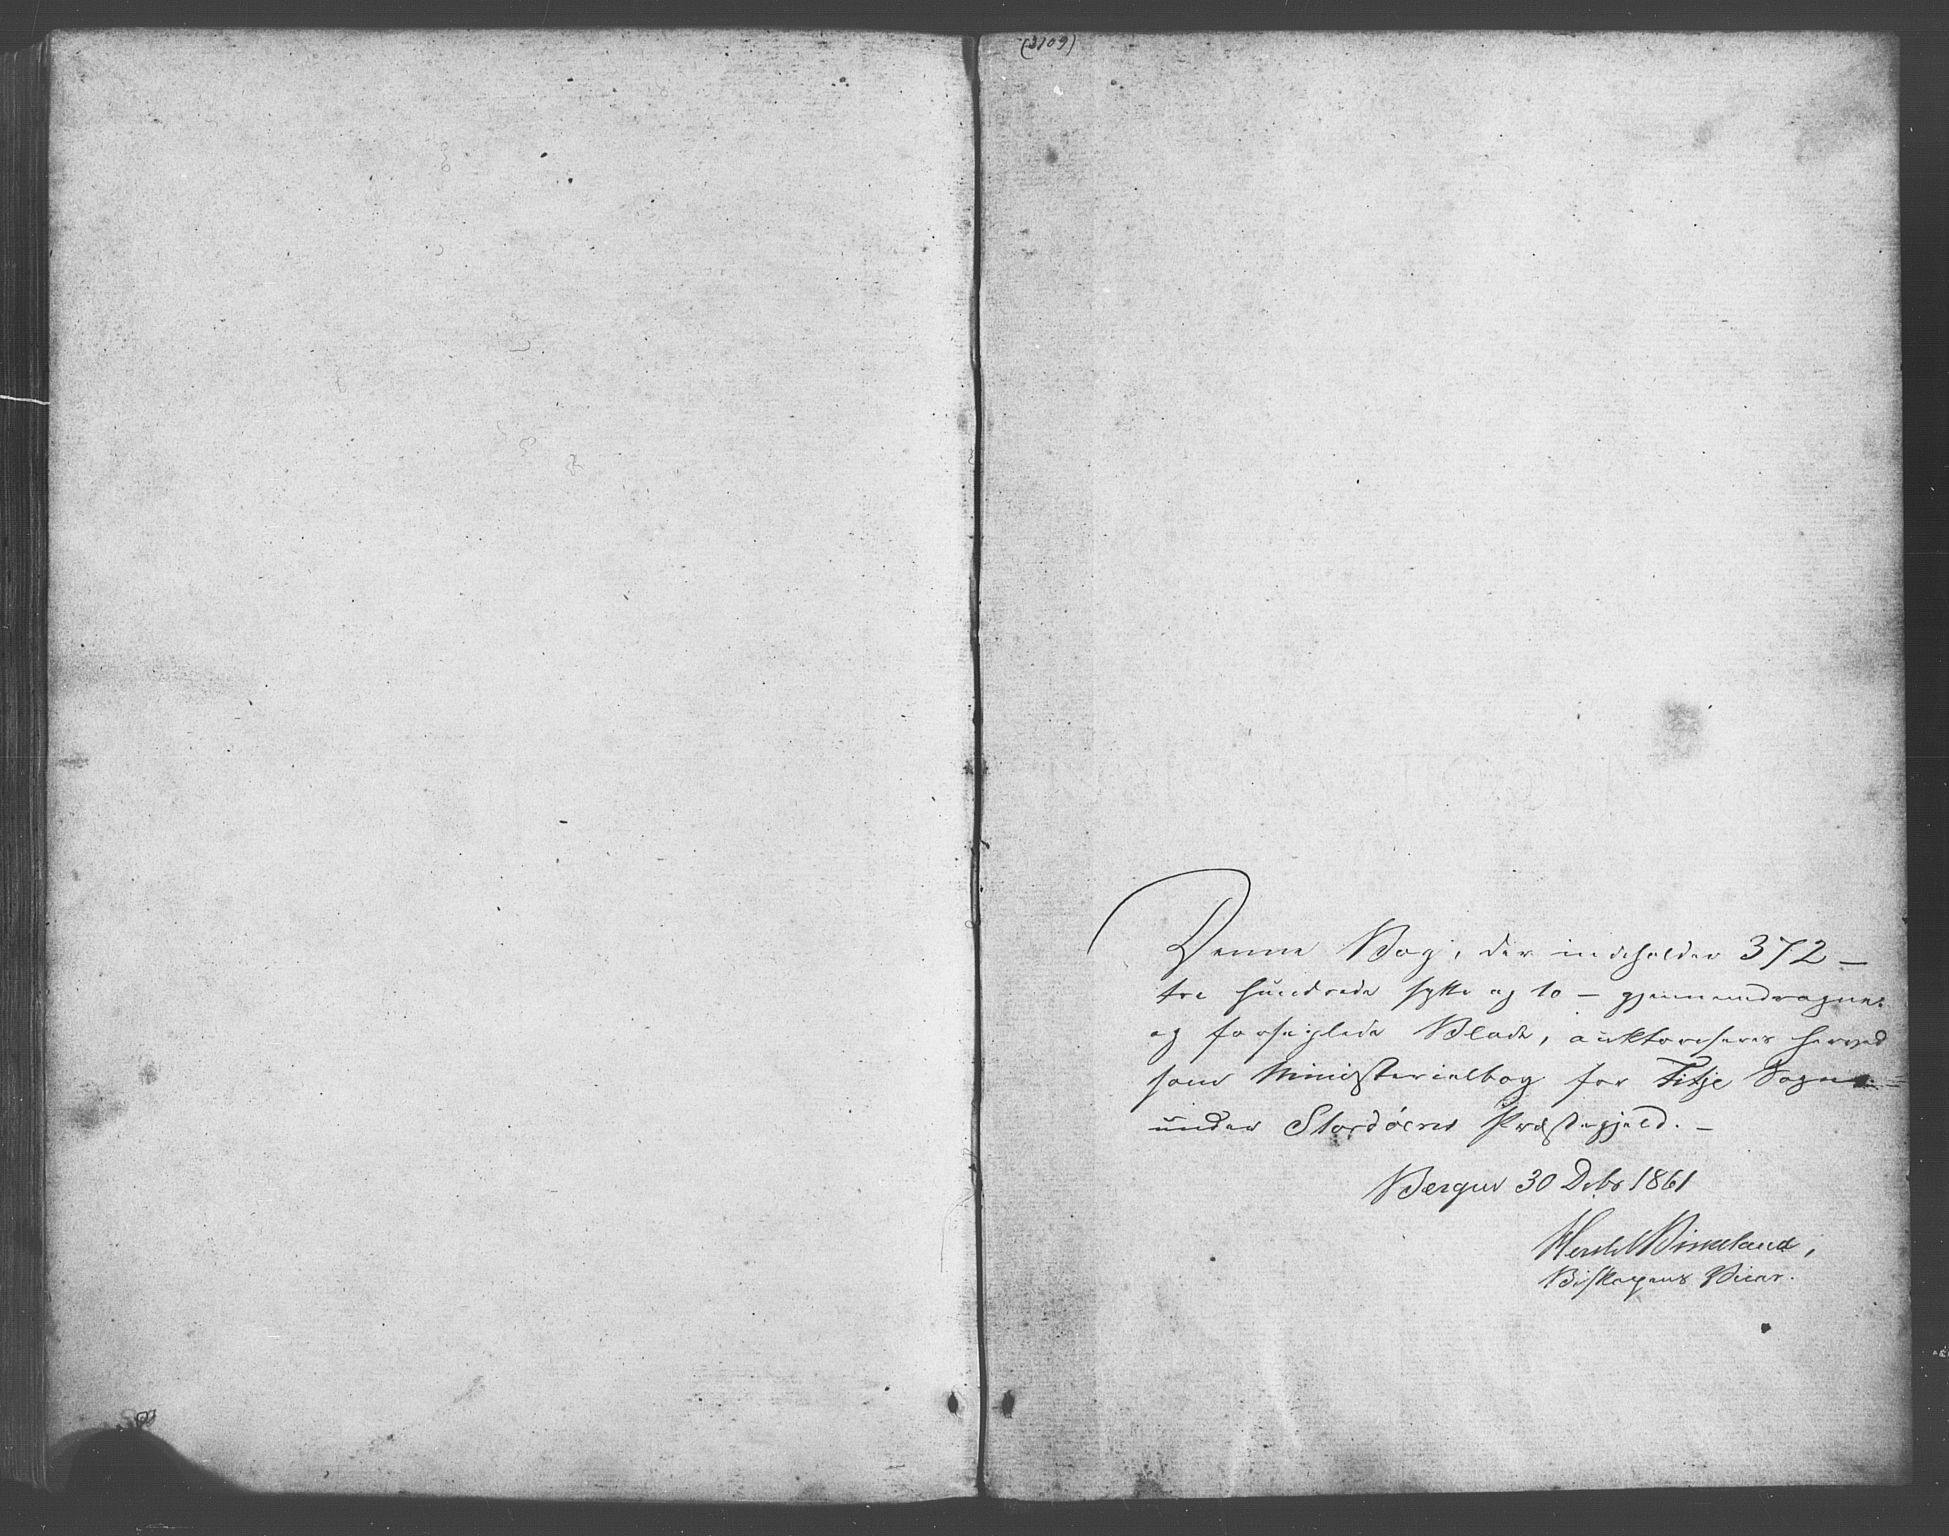 (2109)
Denne Bog, der indeholder 372 —
tre hundrede sytti og to — gjennemdragne
og forseiglede Blade, auktoriseres herved
som Ministerialbog for Fitje Sogn
under Stordöens Præstegjeld. —
Bergen 30 Dcbr 1861
Birkeland,
Biskopens Vicar.